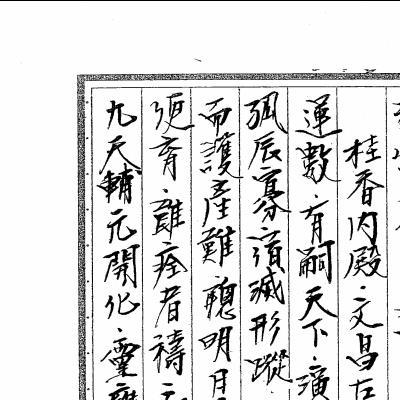 桂香內殿.文昌左
運數.有嗣天下.演
孤辰寡宿滅形蹤.
而護產難.聰明月
便育.痊者禱
九天輔元開化.靈應